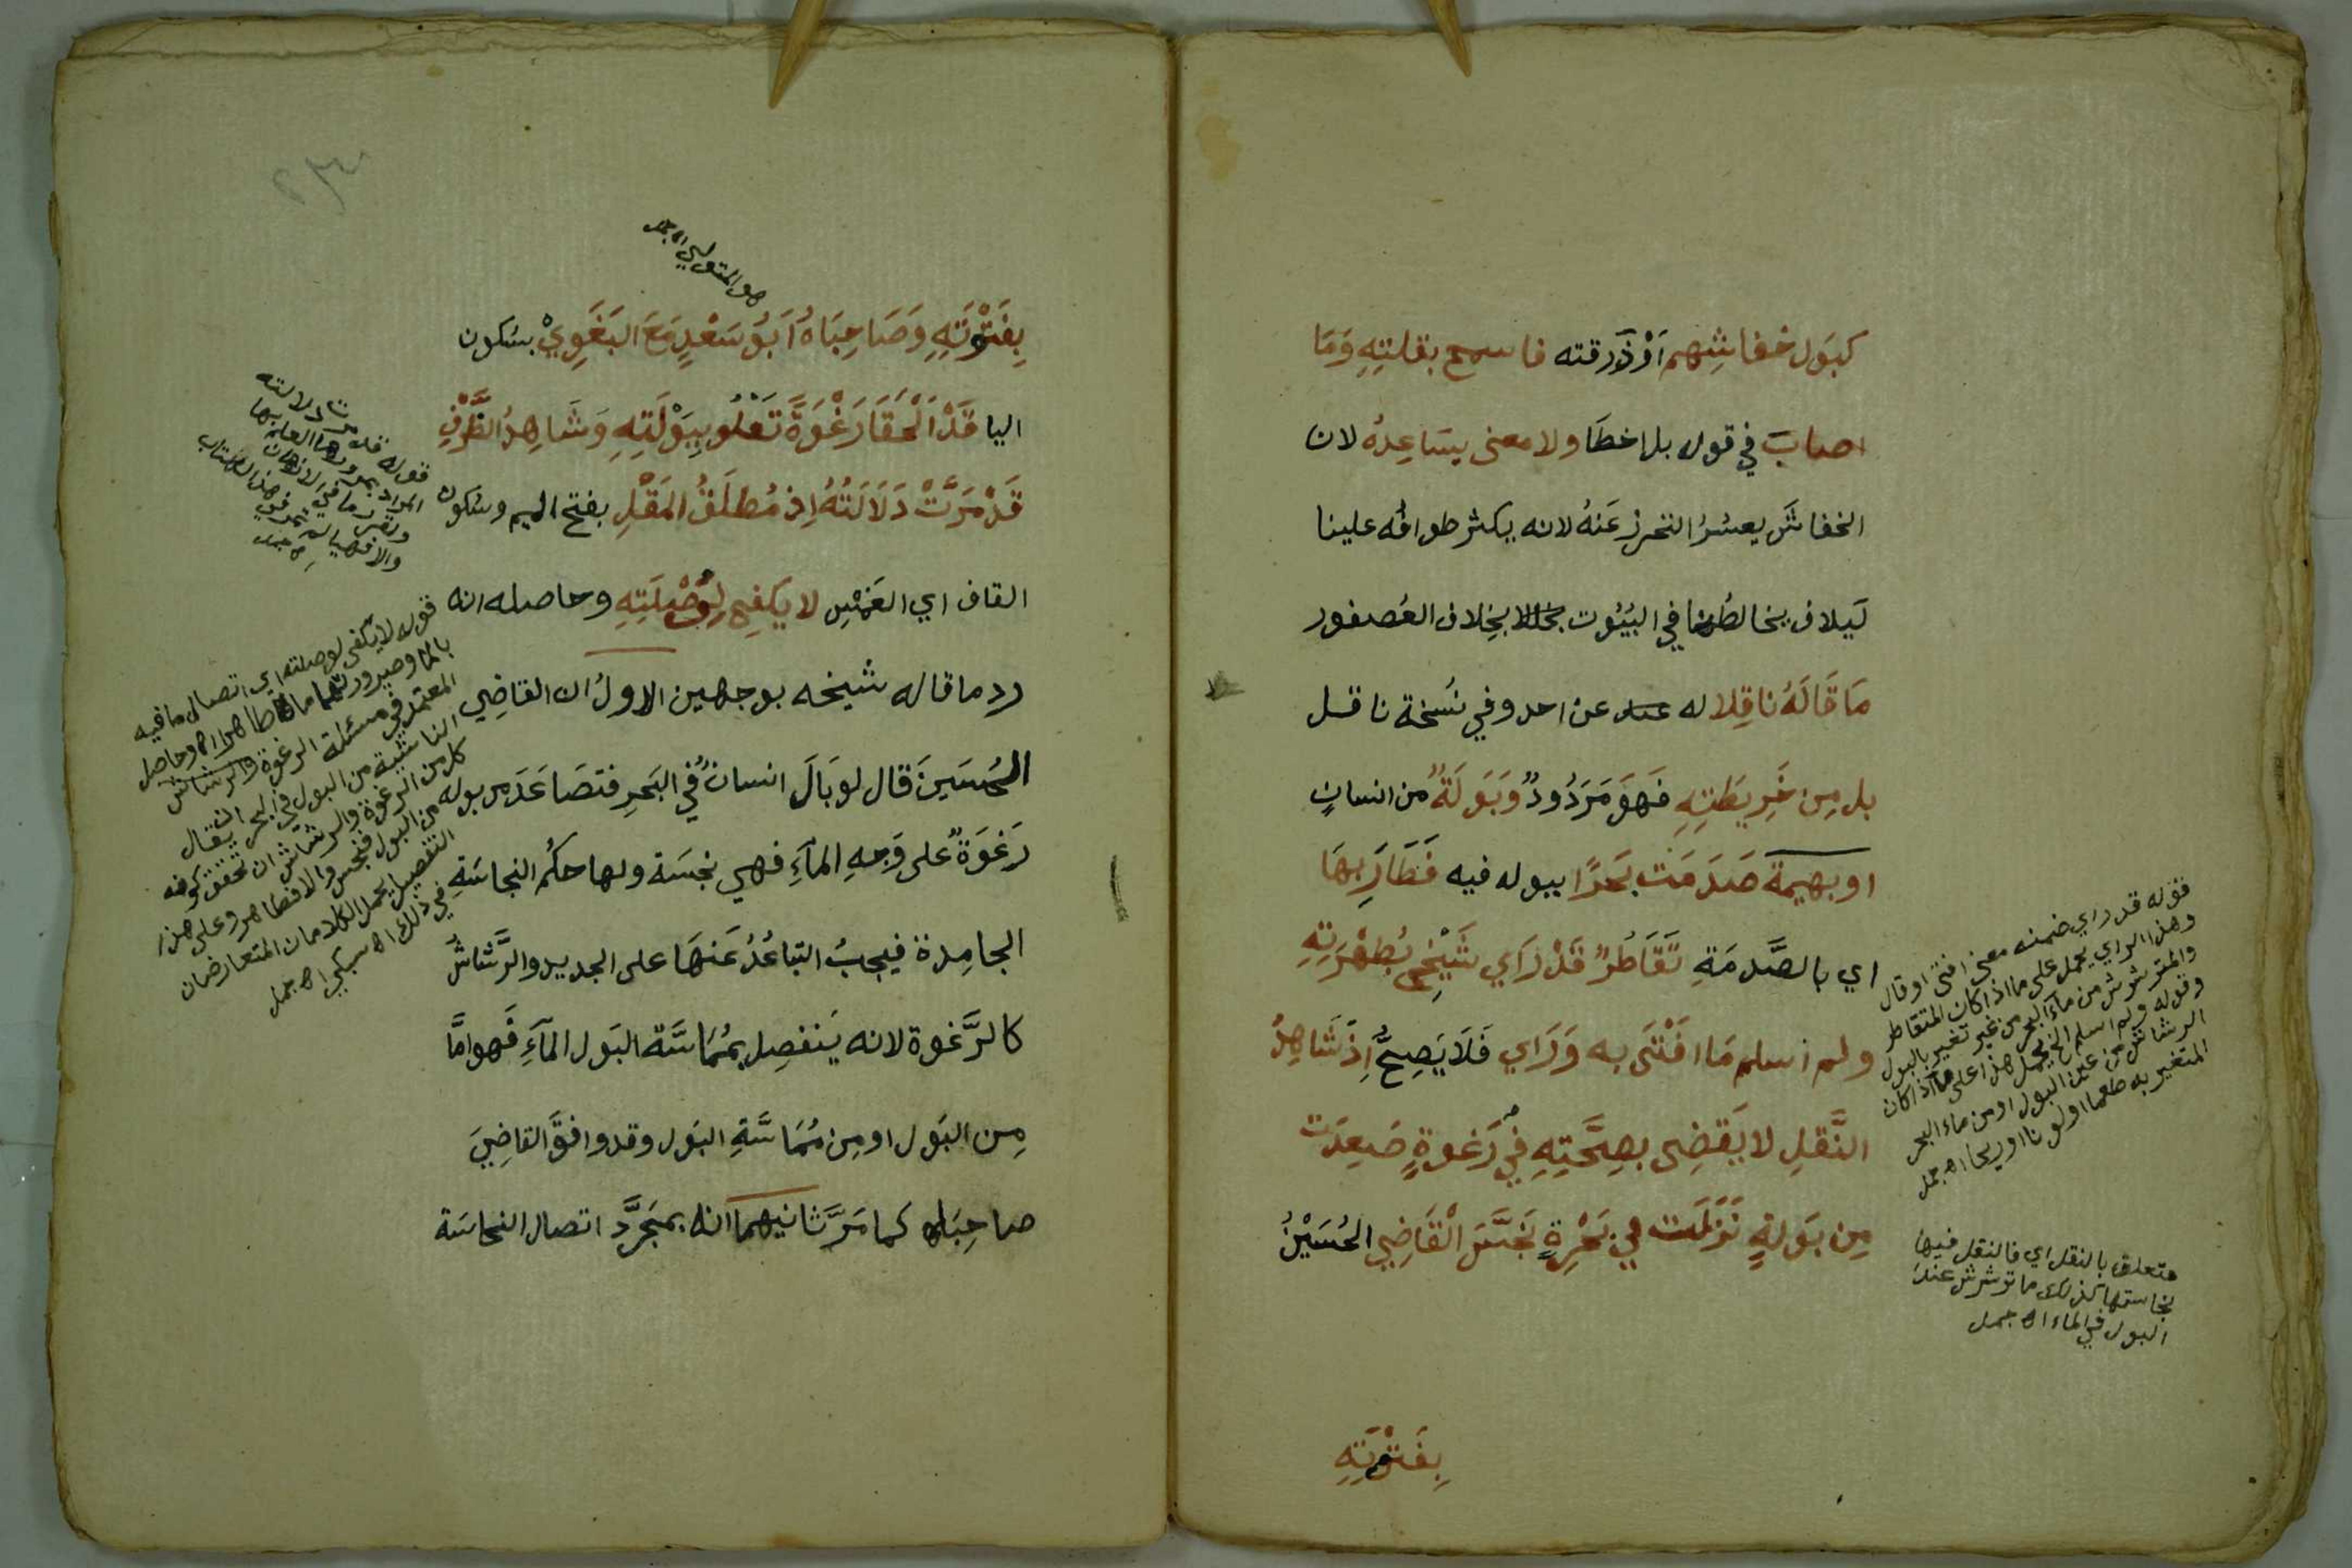 كبَول خفاشِهم اَوْ ذَرقته فاسمح بقلتِهِ وَمَا
اصابَ في قول بل اخطَا ولا معنى يسَاعِدهُ لان
الخفاشَ يعسُرُ التحرز عَنهُ لانه يكثر طوافُه علينا
لَيلا في البُيُوت بِخِلاف العُصفور
مَا قَالَهُ نَاقِلا له عن احد وفي نسُخة ناقل
بل مِن خَرِيطَتِهِ فَهوَ مَردُودٌ وَبَولَةٌ من انسانٍ
او بهيمة صَدَمَت بَحرًا ببوله فيه فَطَارَ بِهَا
اي بالصَّدمَةِ تَقَاطُرٌ قَدْ رَاي شَيْخِي بُطهْرَتِهِ
ولم اسلم مَا افْتَى به وَرَاي فَلَا يَصِحُّ اِذ شَاهِدُ
النَّقلِ لا يَقضِى بصِحَّتِهِ فِي رَغوةٍ صَعِدَت
مِن بَولةٍ نَزَلَت في بَحْرِةٍ نَجَّسَ الْقَاضِي الحُسَيْنُ
بِفَتْوَتِهِ
فقوله قد راي ضمنه معنى افتى او قال
وهذا الراي يحمل على ما اذا كان المتقاطر
والمترشرش من ماء البحر من غير تغير بالبول
وقوله ولم اسلم الخ يحمل هذا على ما اذا كان
الرشاش من عين البول او من ماء البحر
المتغير به طعما او لونا او ريحا اه جمل
متعلق بالنقل اي فالنقل فيها
نجاستها كذلك ما ترشرش عند
البول في الماء اه جمل
هو المتولي اه جمل
بِفَتْوَتِهِ وَصَاحِبَاهُ اَبُو سَعْدٍ مَعَ البَغَوِيْ بسُكون
اليا قَدْ اَلْحَقَا رَغْوَةً تَعْلُو بِبَوْلَتِهِ وَشَاهِدُ الظَّرْفِ
قَدْ مَرَّتْ دَلَالَتُهُ اِذ مُطلَقُ المَقْلِ بفتح الميم وسُكون
القاف اي الغَمْسِ لا يَكفِي لِوُصْلَتِهِ وحاصله انه
رد ما قاله شيخه بوجهين الاولُ ان القاضِي
الحُسَينَ قال لو بَالَ انسانٌ في البَحرِ فتصَاعَدَ من بوله
رَغوَةٌ على وَجهِ المآءِ فهي نجسَة ولها حكمُ النجاسَةِ
الجامِدة فيجبُ التبَاعُدُ عَنهَا على الجديد والرَّشاشُ
كالرَّغوة لانه يَنفصِل بمُمَاسَّة البَول المآءَ فَهو امَّا
مِن البَول او مِن مُمَاسَّةِ البَول وقد وافقَ القاضِيَ
صاحِبَاه كما مَرَّ ثانيهما انه بمجَرَّد اتصال النجاسَة
قوله قد مرت دلالته
المراد بمرورها العلم بها
قوله لا يكفي لوصلته اي اتصال ما فيه
بالماء وصيرورتهما ماء طاهرا اه وحاصل
المعتمد في مسئلة الرغوة والرشاش
الناشئة من البول في البحر ان يقال
كل من الرغوة والرشاش ان تحقق كونه
من البول فنجس والا فطاهر وعلى هذا
التفصيل يحمل الكلامان المتعارضان
في ذلك اه سبكي اه جمل